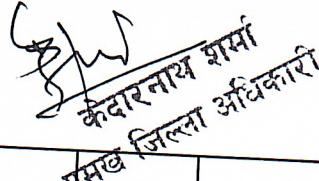 केदारनाथ शर्मा
प्रमुख जिल्ला अधिकारी